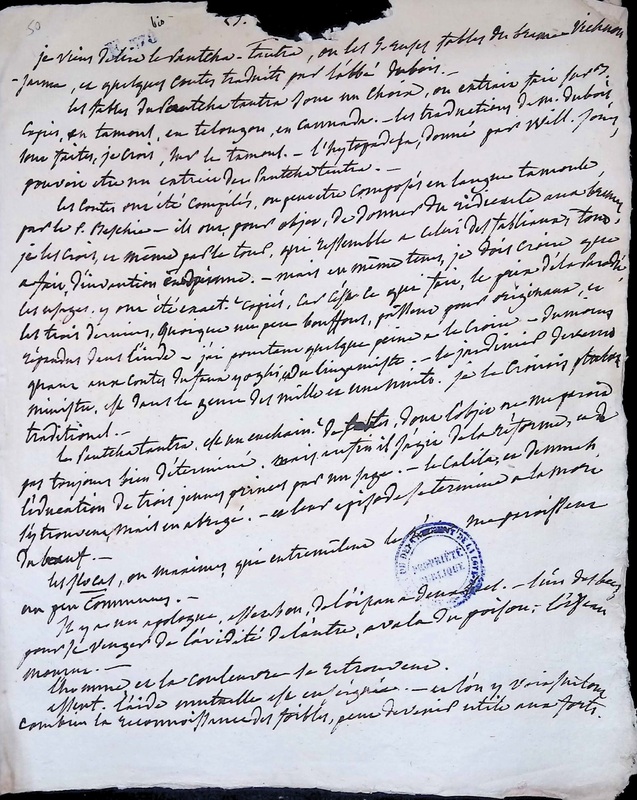 50
bis
je viens de lire le Pantcha-tantra, ou les 5 ruses fables du brame Vichnou
-sarma, et quelques contes traduits par l'abbé dubois.-
les fables du Pantcha tantra sont un choix, ou extrait fait sur 3
copies, en tamoul, en telougou, en cannada.- les traductions de M. dubois
sont faites, je crois, sur le tamoul.- l'hytopadesa, donné par Will. Jones,
pouvoit etre un extrait du Pantcha tantra.-
les contes ont été compilés, ou peut etre composés en langue tamoule
par le P. Beschie - ils ont pour objet, de donner du ridicule aux brames
je les crois, et même par le tour, qui ressemble a celui des fabliaux, tout
a fait d'invention européenne.- mais en même tems, je dois croire que
les usages y ont été exact.t copiés, car c'est ce que fait, le
les trois derniers, quoique un peu bouffons, passent pour originaux, et
répandus dans l'inde - j'ai pourtant quelque peine a le croire - du moins
quant aux contes du faux yoghi, du lingamiste.- le jardinier devenu
ministre, est dans le genre des mille et une nuits. je le croirois plutot
traditionel.-
le Pantcha tantra, est un enchain.t de fables, dont l'objet ne me paroit
pas toujours bien determiné. mais enfin il s'agit de la réforme, et de
l'éducation de trois jeunes princes par un sage.- le Calila, et dumnah
s'y trouvent, mais en abrégé.- et leur episode se termine a la mort
du bœuf.-
les slocas, ou maximes, qui entremêlent le me paroissent
un peu communes.-
Il y a un apologue, assez bon, de l'oiseau a deux becs.- l'un des becs
pour se venger de l'avidité de l'autre, avala du poison, l'oiseau
mourut.-
l'homme et la couleuvre se retrouvent.
l'aide mutuelle est enseignée.- et l'on y voit surtout
combien la reconnoissance des foibles, peut devenir utile aux forts.
PROPRIÉTÉ
PUBLIQUE